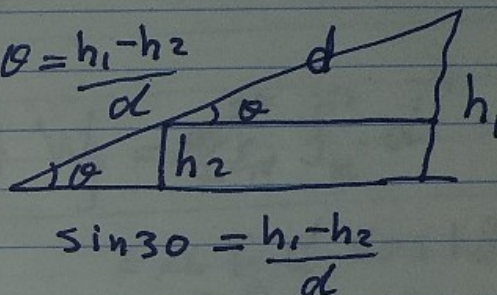 θ = h₁-h₂ / d
d
θ
h₁
θ
h₂
sin30 = h₁-h₂ / d